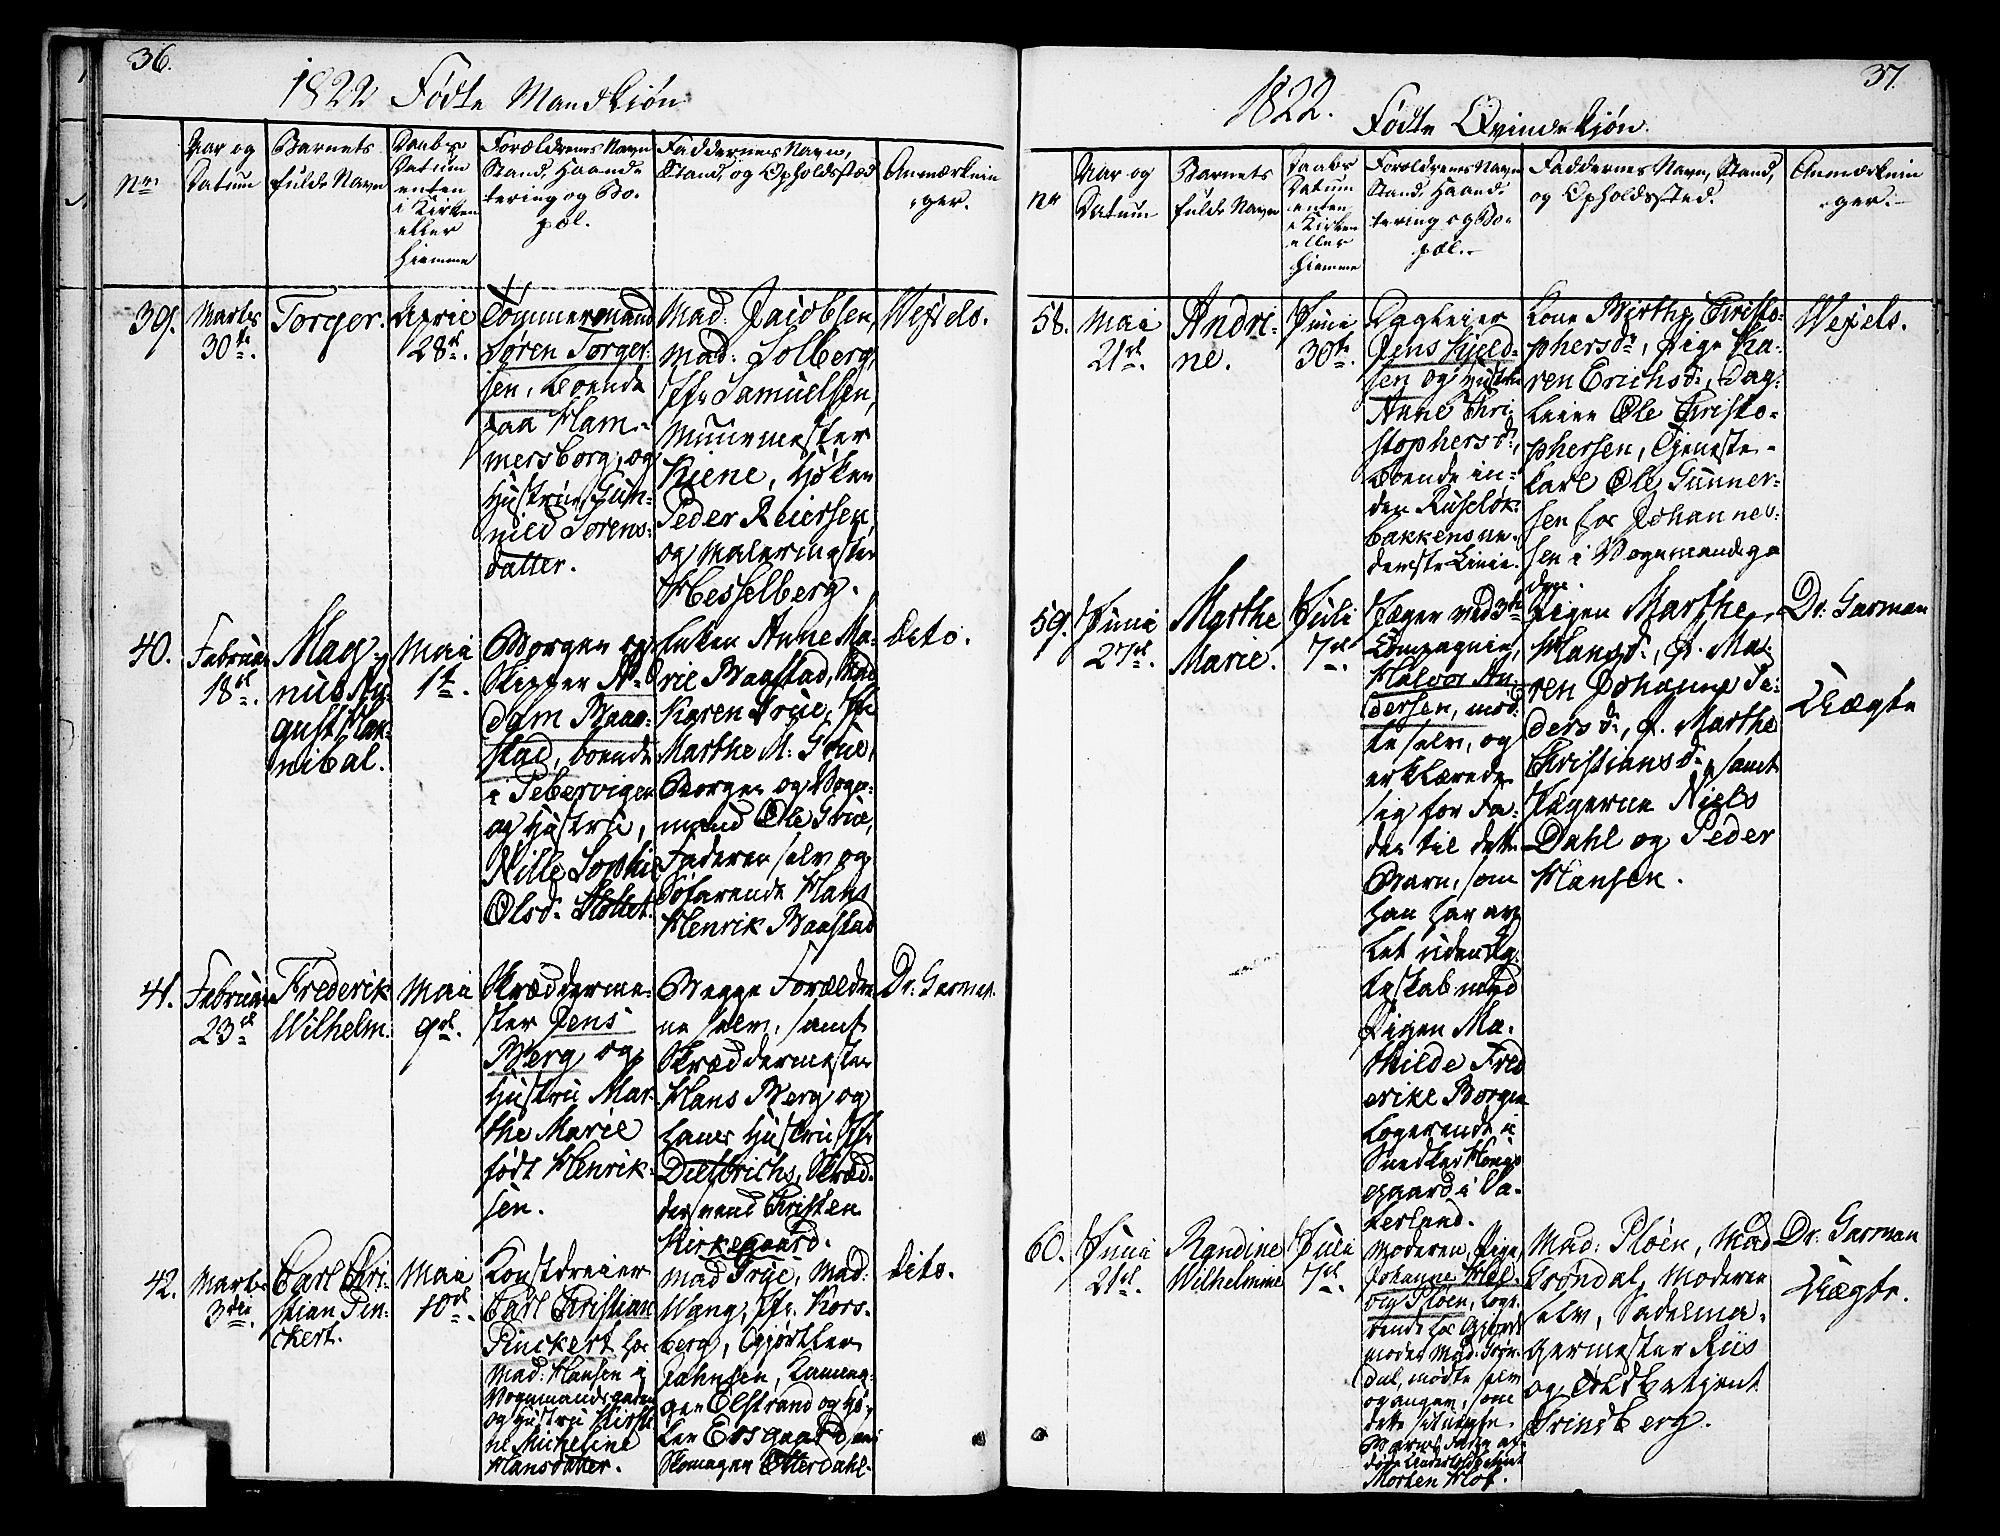 36.
1822 Fødte Mandkiøn
Nr.
Aar og
Datum
Barnets
fulde Navn
Daabs
Datum
enten
i Kirken
eller
Hiemme
Forældrenes Navn
Stand, Haand
tering og Bo-
pæl.
Faddernes Navn,
Stand, og Opholdsstæd
Anmærknin
ger.
39.
Marts
30te.
Torger.
April
28de.
Tømmermand
Søren Torger-
sen, boende
paa Ham-
mersborg, og
Hustrue Gun-
nild Sørens-
datter.
Mad: Jacobsen,
Mad: Solberg,
Jfr. Samuelsen,
Muurmester
Kiene, Høker
Peder Reiersen,
og Malermester
Hesselberg.
Wexels.
40.
Februar
18de.
Mag-
nus Au-
gust Han-
nibal.
Mai
1te.
Borger og
Skipper A-
dam Baas-
stad, boende
i Pebervigen
og Hustru,
Nille Sophie
Olsd.
Enken Anne Ma-
rie Baastad, Mad
Karen Grue, Jfr
Marthe M. Grue,
Borger og Vogn-
mand Ole Grue,
Faderen selv og
Søfarende Hans
Henrik Baastad
Dito.
41.
Februar
23de
Frederik
Wilhelm.
Mai
9de.
Skrædderme-
ster Jens
Berg og
Hustru Mar-
the Marie
født Henrik-
sen.
Begge Forældre
ne selv, samt
Skræddermester
Hans Berg og
hans Hustru Jfr
Diettrichs, Skræd-
dersvend Christen
Kirkegaard.
Dr. Garman.
42.
Marts
3die
Carl Chri-
stian Pin-
ckert.
Mai
10de.
Konstdreier
Carl Christian
Pinckert hos
Mad: Hansen i
Vognmandsgaden
og Hustru Kirsti
ne Micheline
Hansdatter.
Mad Grue, Mad:
Wang, Jfr. Kors-
berg, Gjørtler
Jahnsen,
Elstrand og Hø-
ker Evsgaard, og
Skomager Otterdahl.
Dito.
37.
1822.
Fødte Qvindekjøn.
Nr
Aar og
Datum
Barnets
fulde Navn
Daabs
Datum
enten
i Kirken
eller
Hiemme
Forældrenes Navn
Stand, Haand
tering og Bo-
pæl.
Faddernes Navn, Stand,
og Opholdssted.
Anmærknin
ger.
58.
Mai
21de.
Andri-
ne.
Juni
30te.
Dagleier
Jens Kield-
sen og Hustru
Anne Chri
stophersd.,
boende in-
den Ruseløk-
bakkens ne-
derste Linie.
Kone Birthe Christo-
phersd., Pige Ka-
ren Erichsd., Dag-
leier Ole Christo-
phersen, Tjeneste-
karl Ole Gunner-
sen hos Johanne-
sen i Vognmandsga
den.
Wexels.
59.
Juni
27de.
Marthe
Marie.
Juli
7de.
Jæger ved 3de
Compagnie,
Halvor An-
dersen, mød-
te selv, og
erklærede
sig for Fa-
der til dette
Barn, som
han har av-
let uden Æg-
teskab med
Pigen Ma-
thilde Fred
erike Borgen
logerende i
Snedker Hougs
gaard i Va-
terland.
Pigen Marthe
Hansd., P. Ma-
ren Johanne Pe-
dersd., P. Marthe
Christiansd., samt
Jægerne Niels
Dahl og Peder
Hansen.
Dr. Garman
Uægte
60.
Juni
21de.
Randine
Wilhelmine
Juli
7de.
Moderen, Pige
Johanne Hel-
vig Ploen, loge-
rende hos Gjord-
moder Mad: Grøn-
dal, mødte selv
og angav, som
dette sit uægte
Barns Fader af-
døde Underbetjent
Morten Klot.
Mad: Ploen, Mad
Grøndal, Moderen
selv, Sadelma-
germester Riis
og Toldbetjent
Grindberg.
Dr. Garman
Uægte.